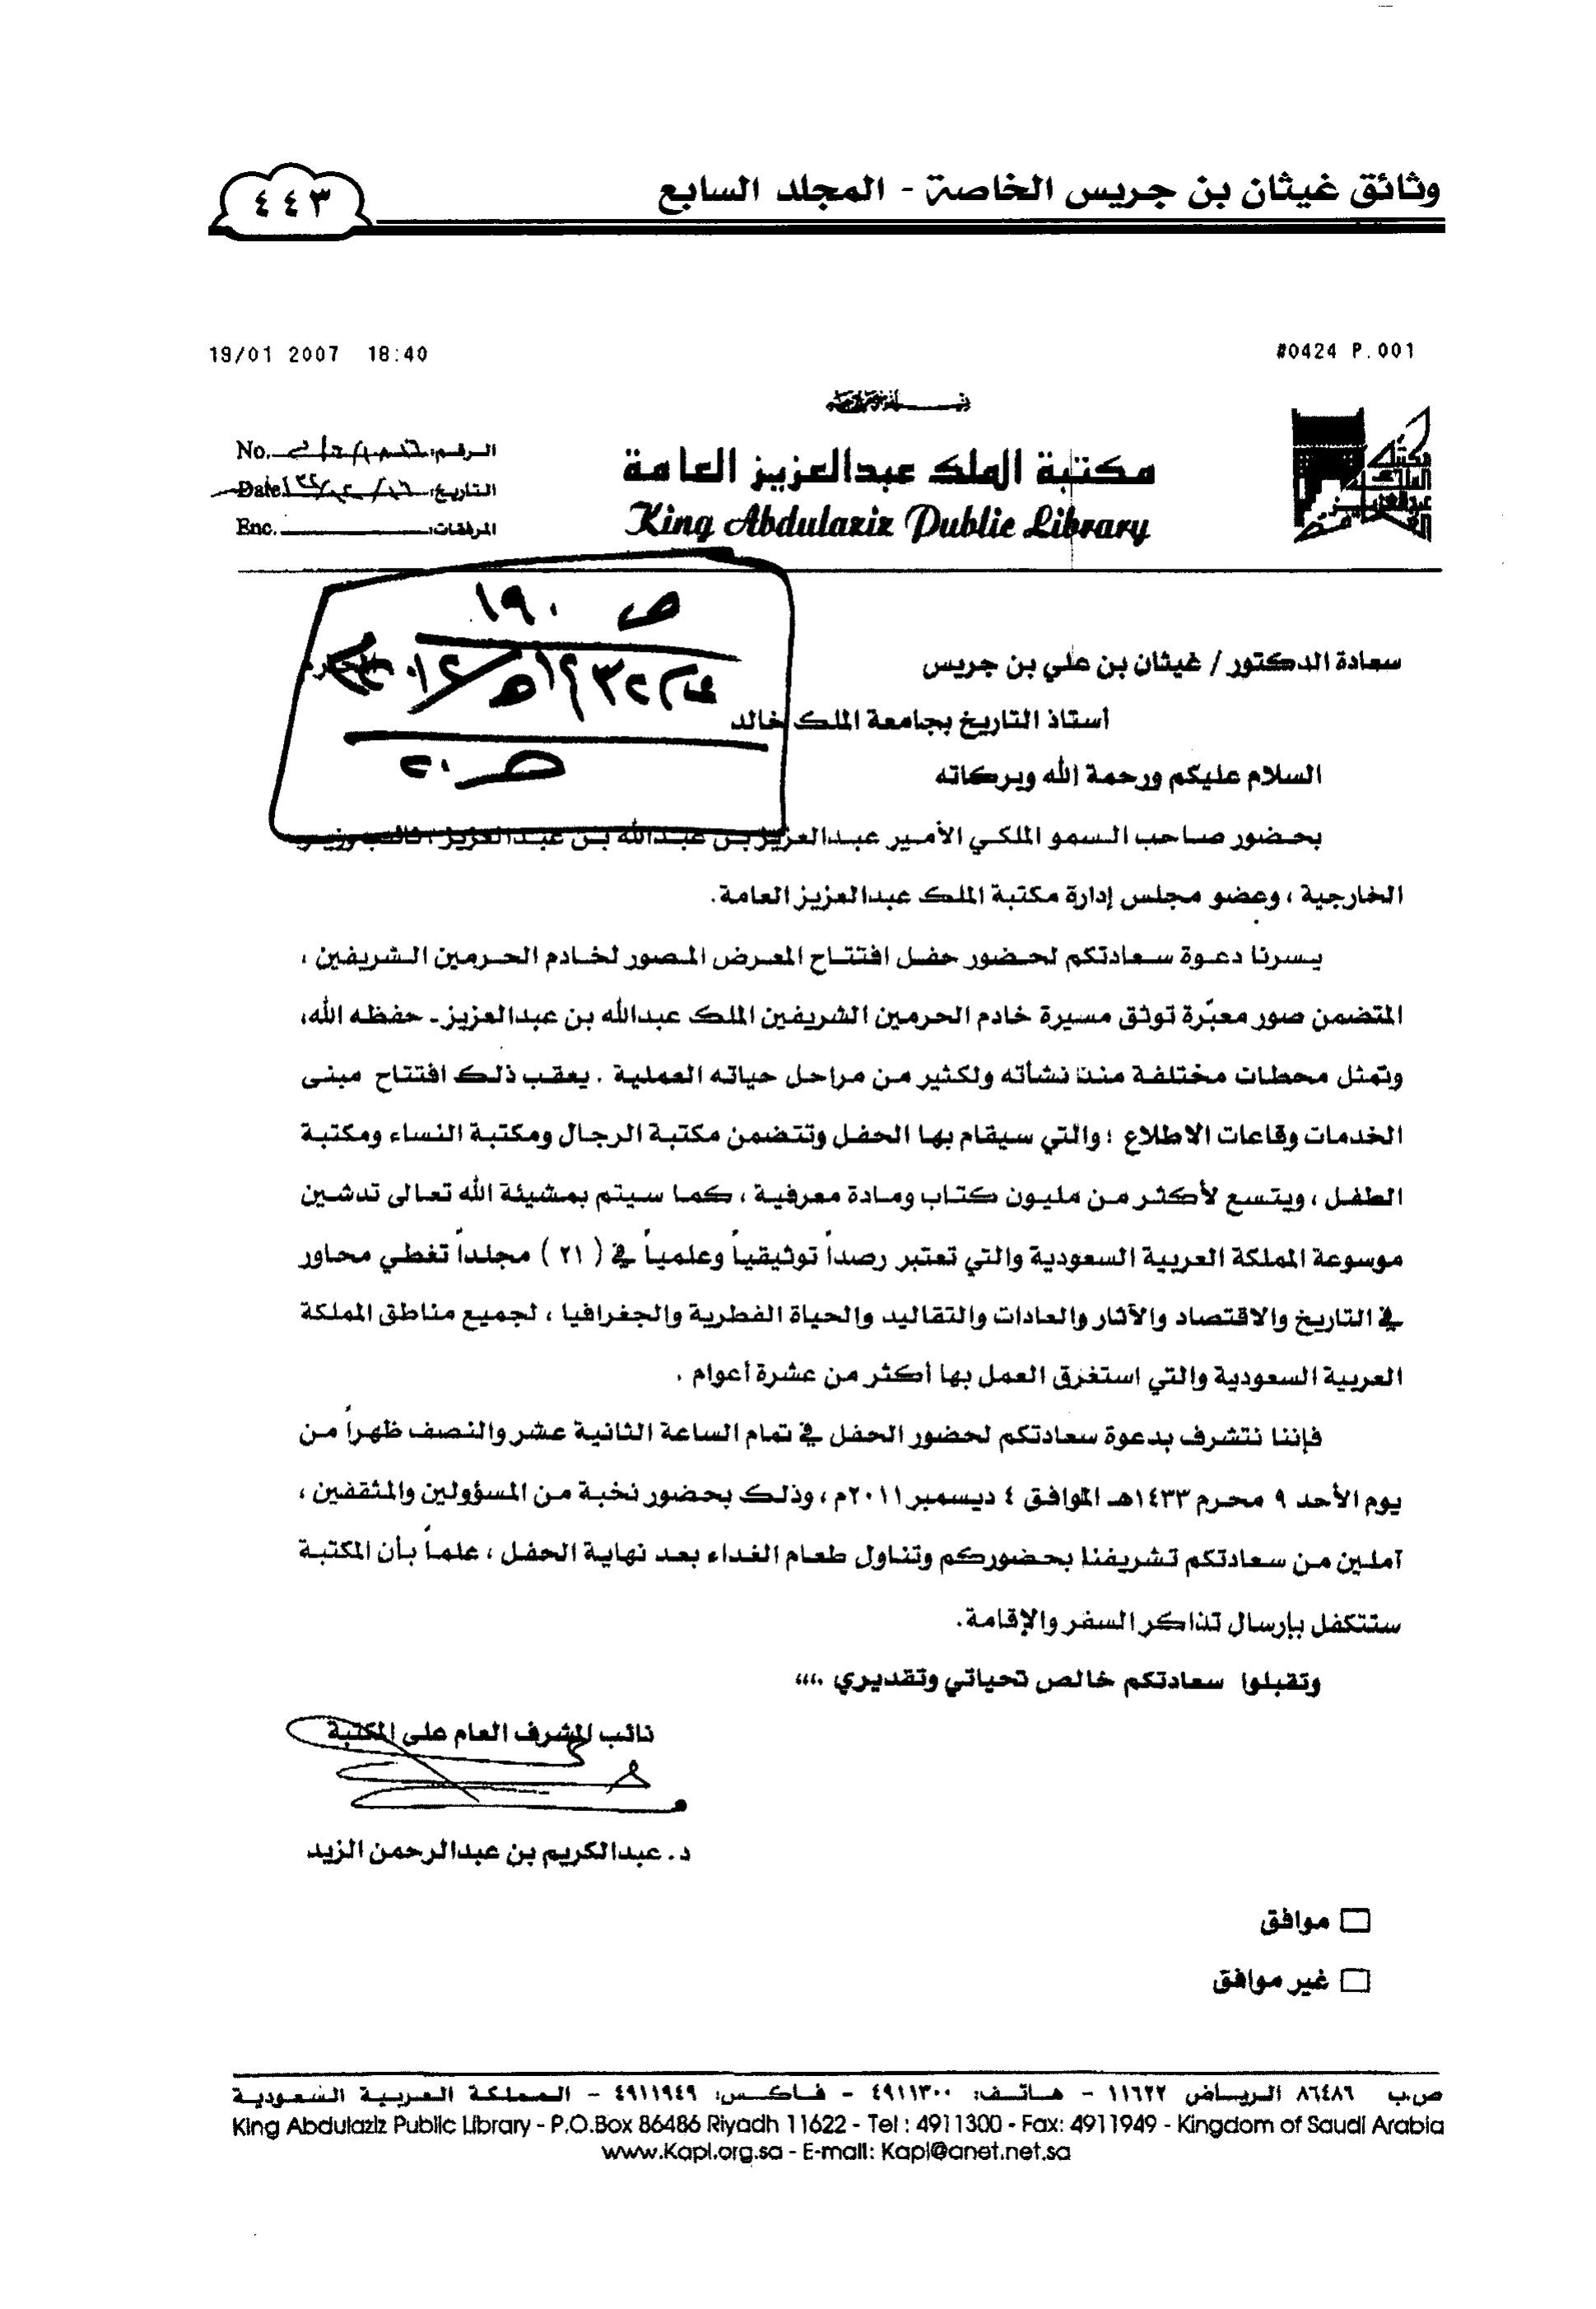 وثائق غيثان بن جريس الخاصة - المجلد السابع
٤٤٣
19/01 2007 18:40
#0424 P.001
مكتبة الملك عبدالعزيز العامة
King Abdulaziz Public Library
No. الرقم:
Date التاريخ:
Enc. المرفقات:
ص ١٩٠
ص ٢٠
سعادة الدكتور / غيثان بن علي بن جريس
أستاذ التاريخ بجامعة الملك خالد
السلام عليكم ورحمة الله وبركاته
بحضور صاحب السمو الملكي الأمير عبدالعزيز بن عبدالله بن عبدالعزيز ؛ نائب وزير
الخارجية ، وعضو مجلس إدارة مكتبة الملك عبدالعزيز العامة.
يسرنا دعوة سعادتكم لحضور حفل افتتاح المعرض المصور لخادم الحرمين الشريفين ،
المتضمن صور معبّرة توثق مسيرة خادم الحرمين الشريفين الملك عبدالله بن عبدالعزيز - حفظه الله،
وتمثل محطات مختلفة منذ نشأته ولكثير من مراحل حياته العملية . يعقب ذلك افتتاح مبنى
الخدمات وقاعات الاطلاع ؛ والتي سيقام بها الحفل وتتضمن مكتبة الرجال ومكتبة النساء ومكتبة
الطفل ، ويتسع لأكثر من مليون كتاب ومادة معرفية ، كما سيتم بمشيئة الله تعالى تدشين
موسوعة المملكة العربية السعودية والتي تعتبر رصداً توثيقياً وعلمياً في ( ٢١ ) مجلداً تغطي محاور
في التاريخ والاقتصاد والآثار والعادات والتقاليد والحياة الفطرية والجغرافيا ، لجميع مناطق المملكة
العربية السعودية والتي استغرق العمل بها أكثر من عشرة أعوام .
فإننا نتشرف بدعوة سعادتكم لحضور الحفل في تمام الساعة الثانية عشر والنصف ظهراً من
يوم الأحد ٩ محرم ١٤٣٣هـ الموافق ٤ ديسمبر ٢٠١١م ، وذلك بحضور نخبة من المسؤولين والمثقفين ،
آملين من سعادتكم تشريفنا بحضوركم وتناول طعام الغداء بعد نهاية الحفل ، علماً بأن المكتبة
ستتكفل بإرسال تذاكر السفر والإقامة.
وتقبلوا سعادتكم خالص تحياتي وتقديري ،،،،
نائب المشرف العام على المكتبة
د. عبدالكريم بن عبدالرحمن الزيد
موافق
غير موافق
ص.ب ٨٦٤٨٦ الرياض ١١٦٢٢ - هاتف: ٤٩١١٣٠٠ - فاكس: ٤٩١١٩٤٩ - المملكة العربية السعودية
King Abdulaziz Public Library - P.O.Box 86486 Riyadh 11622 - Tel : 4911300 - Fax: 4911949 - Kingdom of Saudi Arabia
www.Kapl.org.sa - E-mail: Kapl@anet.net.sa